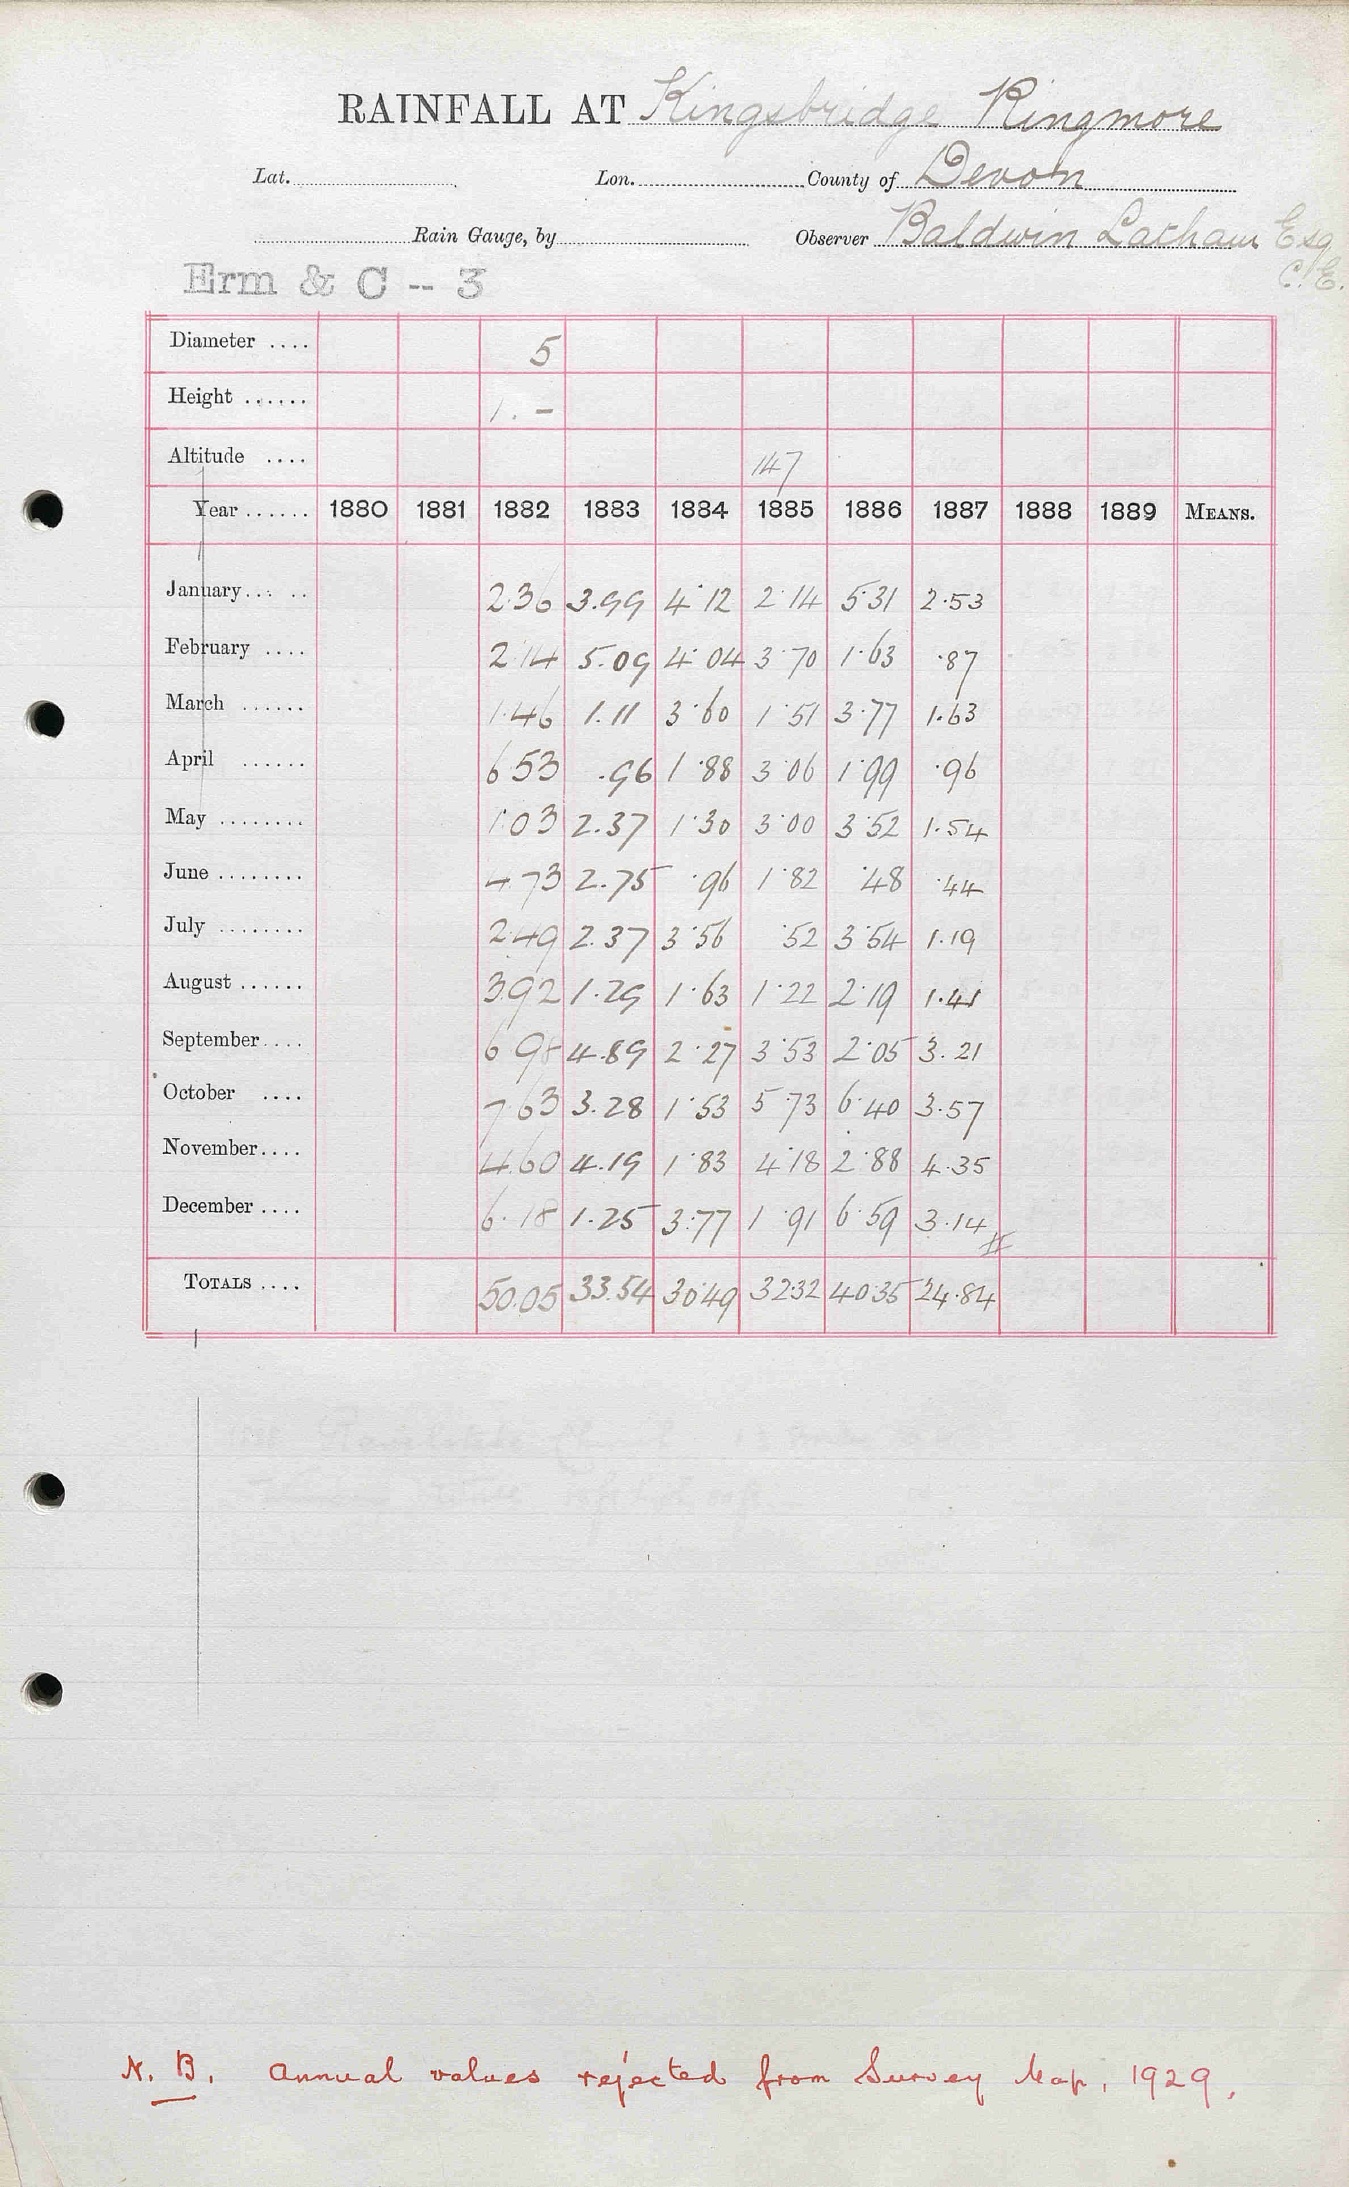 RAINFALL AT Kingsbridge Ringmore
Lat. Lon. County of Devon
Rain Gauge, by Observer Baldwin Latham Esq
C.E.
Erm & C -- 3
Diameter .... 5
Height ...... 1. -
Altitude .... 147
Year ...... 1880 1881 1882 1883 1884 1885 1886 1887 1888 1889 MEANS.
January... .. 2.36 3.99 4.12 2.14 5.31 2.53
February .... 2.14 5.09 4.04 3.70 1.63 .87
March ...... 1.46 1.11 3.60 1.51 3.77 1.63
April ...... 6.53 .96 1.88 3.06 1.99 .96
May ........ 1.03 2.37 1.30 3.00 3.52 1.54
June ........ 4.73 2.75 .96 1.82 .48 .44
July ........ 2.49 2.37 3.56 .52 3.54 1.19
August ...... 3.92 1.29 1.63 1.22 2.19 1.41
September.... 6.98 4.89 2.27 3.53 2.05 3.21
October .... 7.63 3.28 1.53 5.73 6.40 3.57
November.... 4.60 4.19 1.83 4.18 2.88 4.35
December .... 6.18 1.25 3.77 1.91 6.59 3.14
TOTALS .... 50.05 33.54 30.49 32.32 40.35 24.84
N.B. Annual values rejected from Survey Map, 1929.